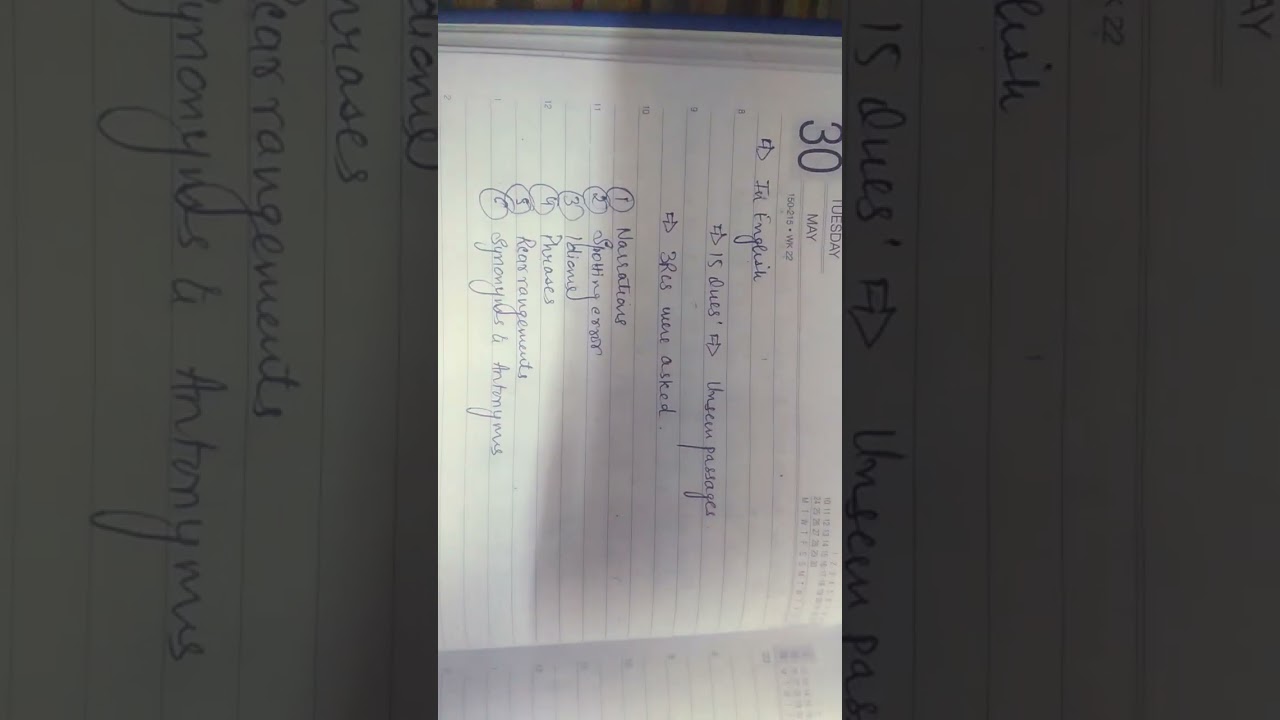 30
TUESDAY
MAY
150-215 • WK 22
8
⇒ In English
9
⇒ 15 Ques' ⇒ Unseen passages.
10
⇒ 3RCs were asked.
① Narrations
11
② Spotting error
③ Idioms
12
④ Phrases
⑤ Rearrangements
1
⑥ Synonyms & Antonyms
2